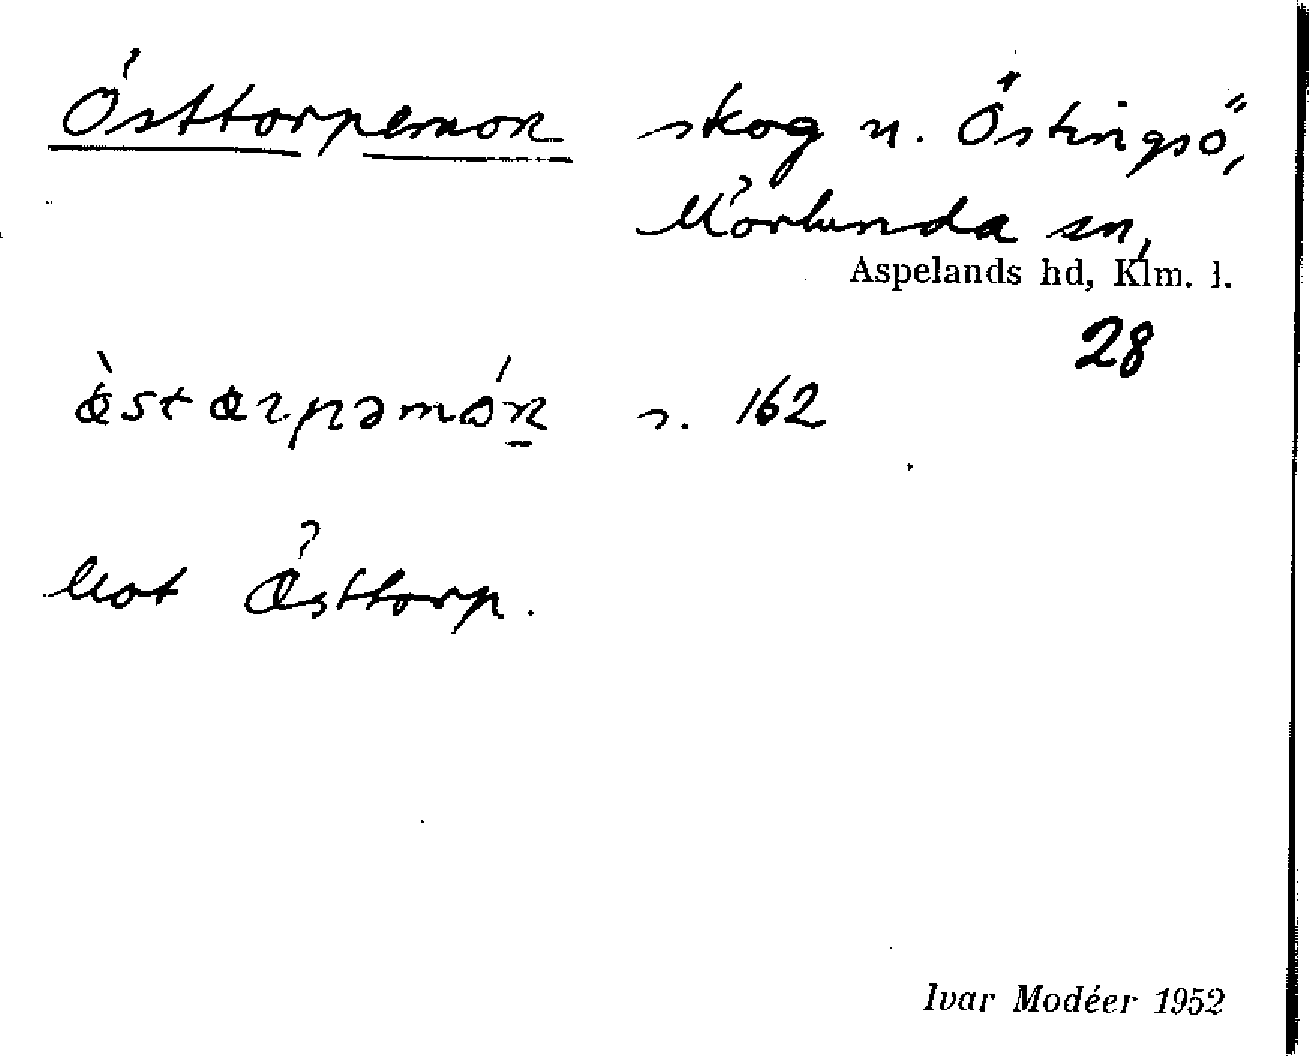 Östtorpemon skog n. Östingsö,
Mörlunda sn,
Aspelands hd, Klm. l.
28
162
Mot Östtorp.
Ivar Modéer 1952